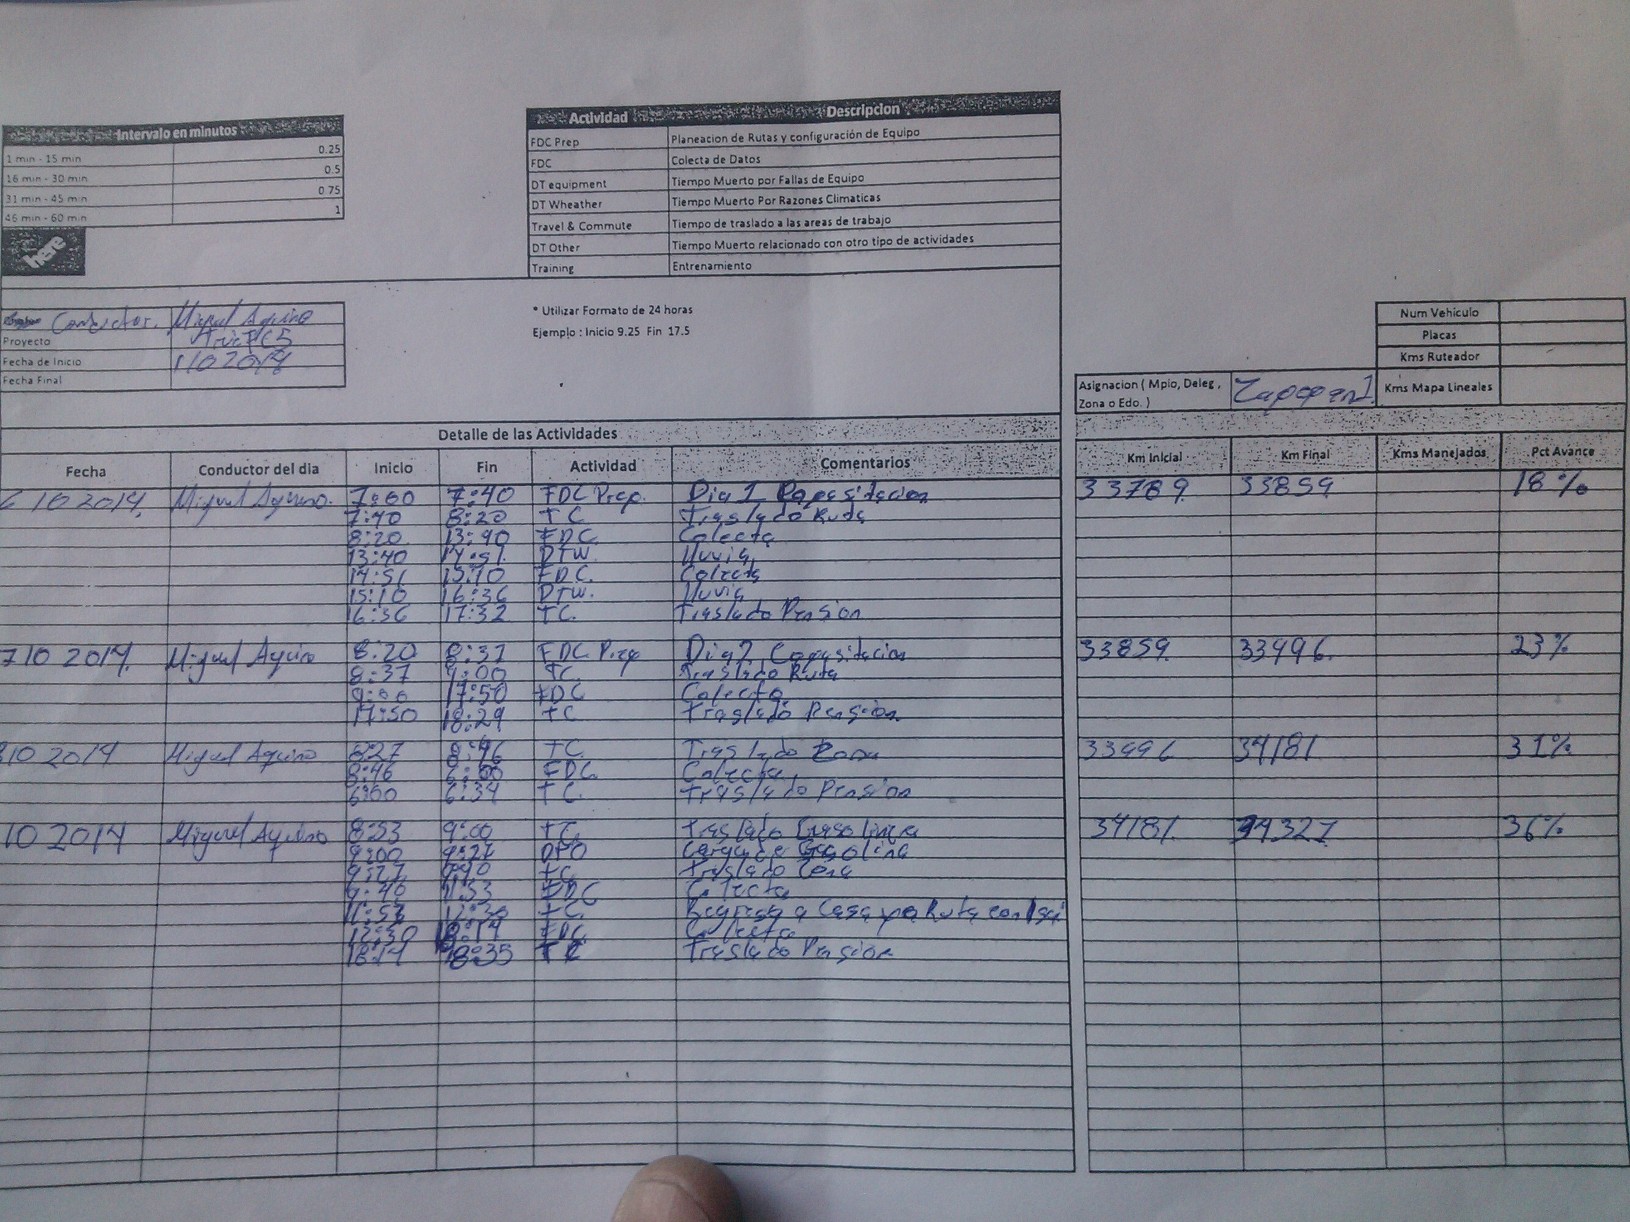 Intervalo en minutos
1 min - 15 min 0.25
16 min - 30 min 0.5
31 min - 45 min 0.75
46 min - 60 min 1
here
Actividad Descripcion
FDC Prep Planeacion de Rutas y configuración de Equipo
FDC Colecta de Datos
DT equipment Tiempo Muerto por Fallas de Equipo
DT Wheather Tiempo Muerto Por Razones Climaticas
Travel & Commute Tiempo de traslado a las areas de trabajo
DT Other Tiempo Muerto relacionado con otro tipo de actividades
Training Entrenamiento
* Utilizar Formato de 24 horas
Ejemplo : Inicio 9.25 Fin 17.5
Conductor. Miguel Aquino
Proyecto
Fecha de Inicio
Fecha Final
Num Vehiculo
Placas
Kms Ruteador
Kms Mapa Lineales
Asignacion ( Mpio, Deleg , Zapopan 1
Zona o Edo. )
Detalle de las Actividades
Fecha Conductor del dia Inicio Fin Actividad Comentarios Km Inicial Km Final Kms Manejados Pct Avance
6 10 2014 Miguel Aquino 7:00 7:40 FDC Prep. Dia 1 Capasitacion 33789 33859 18%
7:40 8:20 TC Traslado Ruta
8:20 13:40 FDC Colecta
13:40 14:51 DTW lluvia
14:51 15:10 FDC. Colecta
15:10 16:36 DTW. lluvia
16:36 17:32 TC. Traslado Pension
7 10 2014. Miguel Aquino 8:20 8:37 FDC Prep Dia 2 Capasitacion 33859 33996 23%
8:37 9:00 TC Traslado Ruta
9:00 17:50 FDC Colecta
17:50 18:29 TC Traslado Pension
10 2014 Miguel Aquino 8:27 8:46 TC. Traslado Zona 33996 34181 31%
8:46 6:00 FDC Colecta
6:00 6:34 TC. Traslado Pension
10 2014 Miguel Aquino 8:53 9:00 TC. Traslado Gasolinera 34181 34327 36%
9:00 9:27 DTO Carga de Gasolina
9:27 9:40 TC Traslado Zona
9:40 11:53 FDC Colecta
11:53 12:30 TC. Regreso a Casa Ruta con
12:30 18:14 FDC Colecta
18:14 18:35 TC Traslado Pension